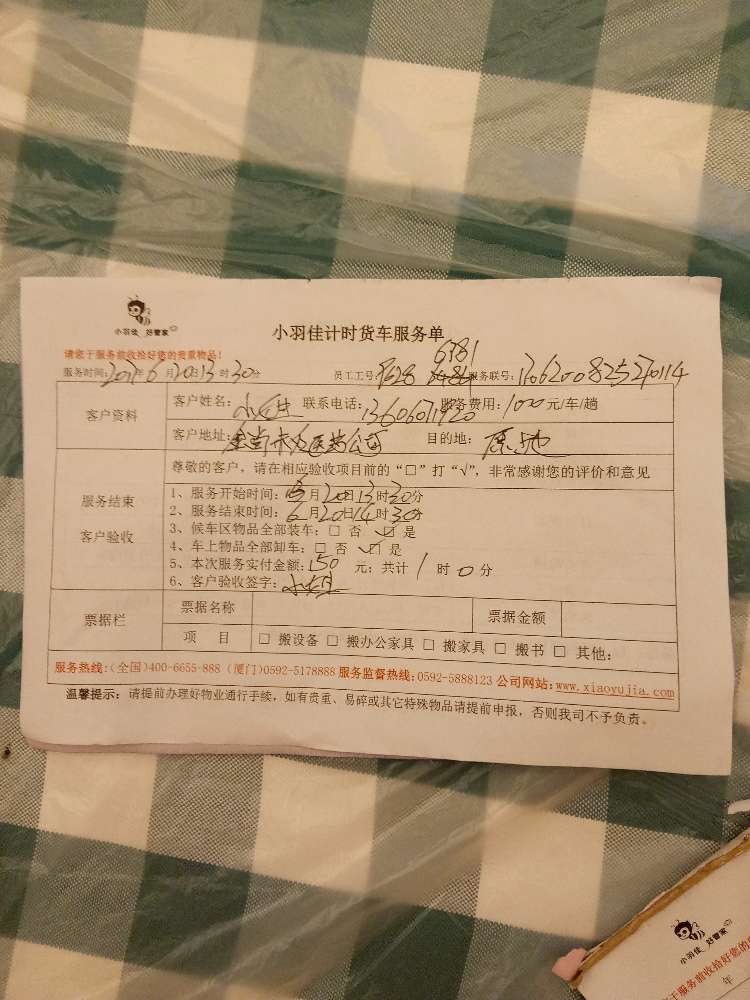 小羽佳 好管家
小羽佳计时货车服务单
请您于服务前收拾好您的贵重物品！
6781
服务时间: 年6月20日13时30分 员工工号: 服务联号:
客户资料
客户姓名: 联系电话:13606071920 服务费用: 元/车/趟
客户地址: 医药公司 目的地: 原地
尊敬的客户，请在相应验收项目前的“□”打“√”，非常感谢您的评价和意见
服务结束
客户验收
1、服务开始时间: 月20日13时30分
2、服务结束时间:6月20日14时30分
3、候车区物品全部装车: □ 否 ☑ 是
4、车上物品全部卸车: □ 否 ☑ 是
5、本次服务实付金额:150 元; 共计 1 时 0 分
6、客户验收签字:
票据栏
票据名称 票据金额
项 目 □ 搬设备 □ 搬办公家具 □ 搬家具 □ 搬书 □ 其他:
服务热线:(全国)400-6655-888 (厦门)0592-5178888 服务监督热线:0592-5888123 公司网站:www.xiaoyujia.com
温馨提示: 请提前办理好物业通行手续，如有贵重、易碎或其它特殊物品请提前申报，否则我司不予负责。
小羽佳 好管家
于服务前收拾好您的
年